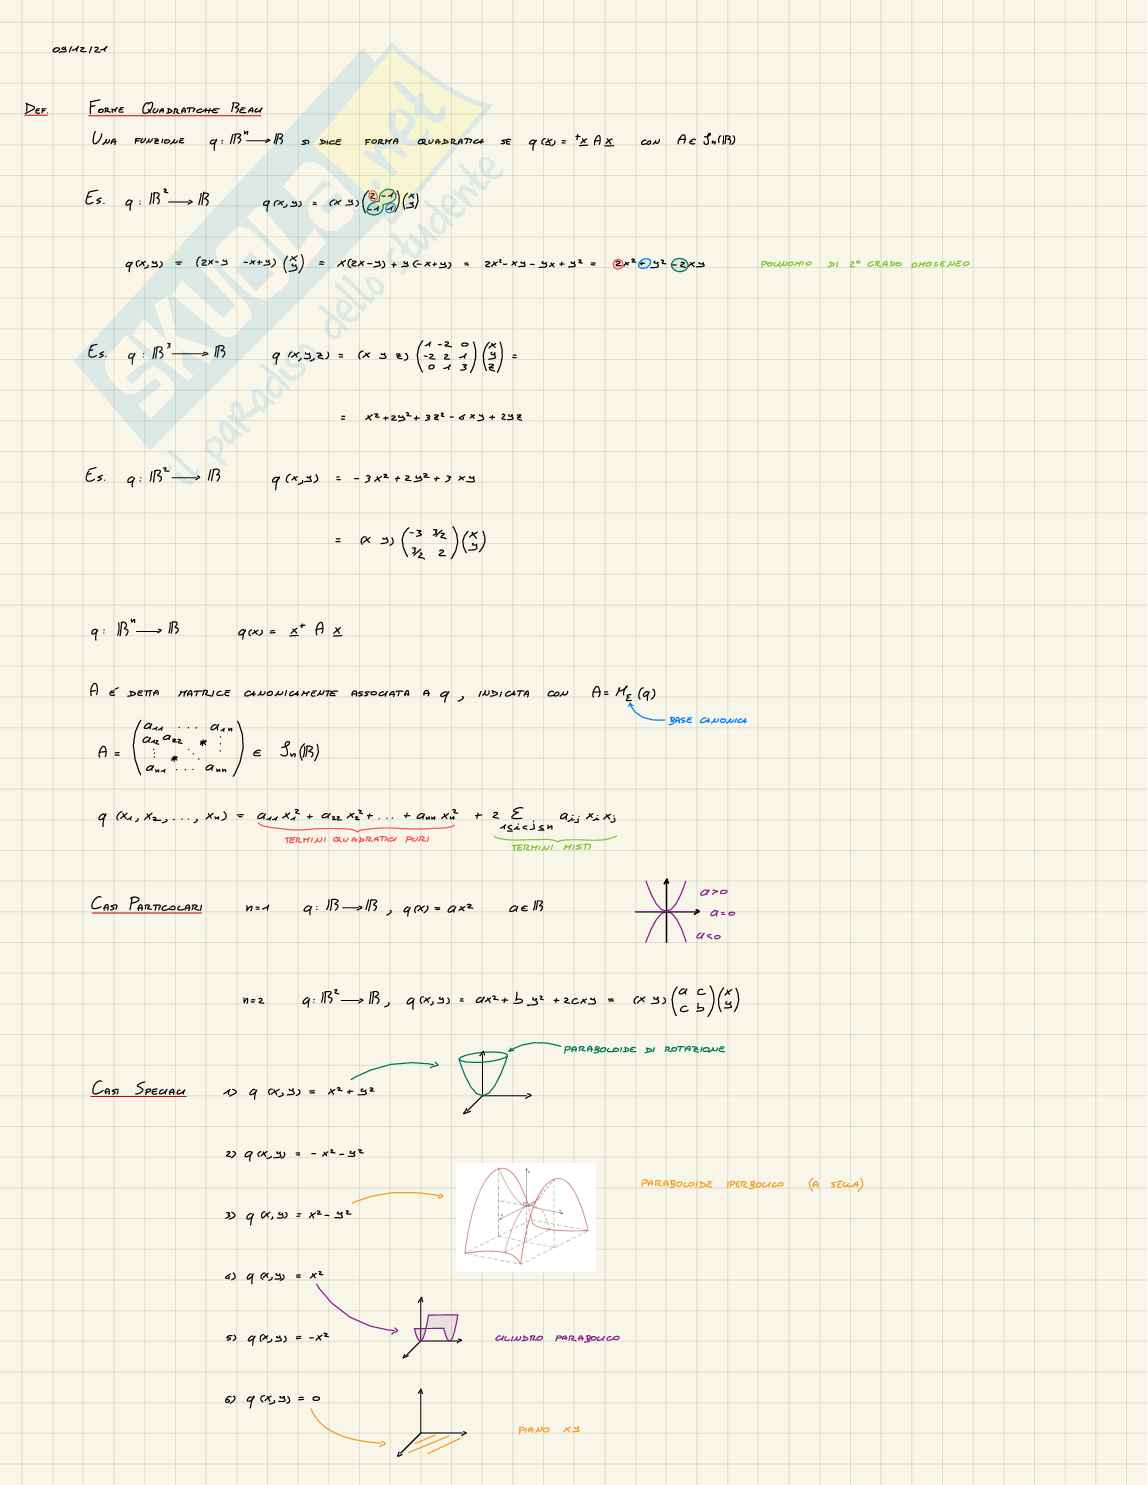 09/12/21
DEF. FORME QUADRATICHE REALI
UNA FUNZIONE q: ℝⁿ → ℝ SI DICE FORMA QUADRATICA SE q(x) = ᵗx A x CON A ∈ Sₙ(ℝ)
ES. q: ℝ² → ℝ q(x,y) = (x y) (2 -1 / -1 1) (x / y)
q(x,y) = (2x-y -x+y) (x / y) = x(2x-y) + y(-x+y) = 2x² - xy - yx + y² = 2x² + y² - 2xy POLINOMIO DI 2° GRADO OMOGENEO
ES. q: ℝ³ → ℝ q(x,y,z) = (x y z) (1 -2 0 / -2 2 1 / 0 1 3) (x / y / z) =
= x² + 2y² + 3z² - 4xy + 2yz
ES. q: ℝ² → ℝ q(x,y) = -3x² + 2y² + 3xy
= (x y) (-3 3/2 / 3/2 2) (x / y)
q: ℝⁿ → ℝ q(x) = xᵗ A x
A É DETTA MATRICE CANONICAMENTE ASSOCIATA A q, INDICATA CON A = M_E(q)
BASE CANONICA
A = (a₁₁ ... a₁ₙ / a₁₂ a₂₂ * ⋮ / ⋮ * ⋱ ⋮ / aₙ₁ ... aₙₙ) ∈ Sₙ(ℝ)
q(x₁, x₂, ..., xₙ) = a₁₁x₁² + a₂₂x₂² + ... + aₙₙxₙ² + 2 Σ 1≤i<j≤n aᵢⱼ xᵢ xⱼ
TERMINI QUADRATICI PURI TERMINI MISTI
CASI PARTICOLARI n=1 q: ℝ → ℝ, q(x) = ax² a ∈ ℝ
a>0
a=0
a<0
n=2 q: ℝ² → ℝ, q(x,y) = ax² + by² + 2cxy = (x y) (a c / c b) (x / y)
PARABOLOIDE DI ROTAZIONE
CASI SPECIALI 1) q(x,y) = x² + y²
2) q(x,y) = -x² - y²
PARABOLOIDE IPERBOLICO (A SELLA)
3) q(x,y) = x² - y²
4) q(x,y) = x²
5) q(x,y) = -x² CILINDRO PARABOLICO
6) q(x,y) = 0
PIANO xy
SKUOLA.net
il paradiso dello studente